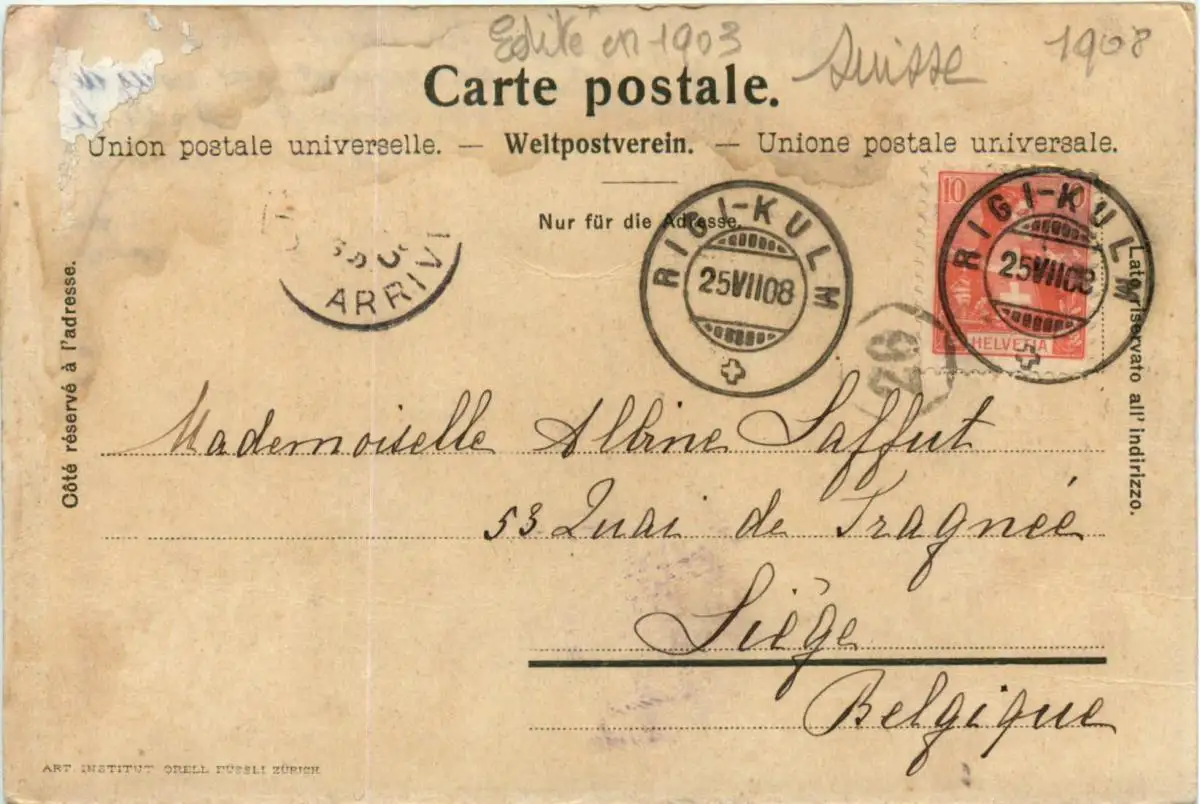 Edité en 1903
Suisse
1908
Carte postale.
Union postale universelle. — Weltpostverein. — Unione postale universale.
Nur für die Adresse.
Côté réservé à l'adresse.
Lato riservato all' indirizzo.
ARRIV
RIGI-KULM
25VII08
10
HELVETIA
RIGI-KULM
25VII08
Mademoiselle Albine Laffut
53 Quai de Fragnée
Liège
Belgique
ART. INSTITUT ORELL FÜSSLI ZÜRICH